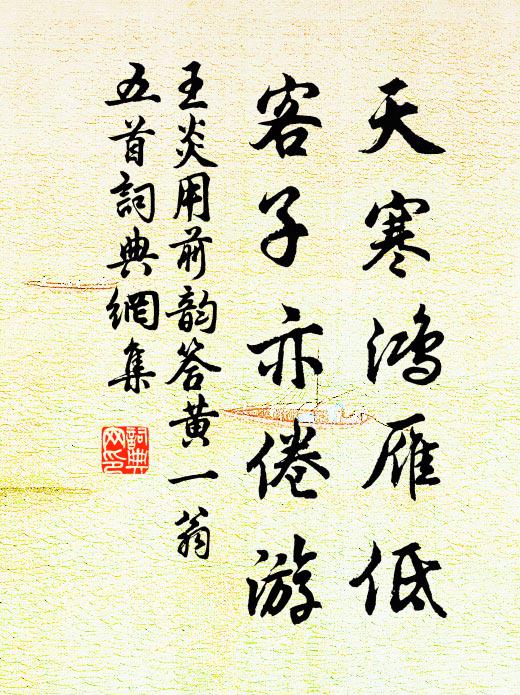 天寒鸿雁低
客子亦倦游
王炎用前韵答黄一翁
五首詞典網集
詞典
网印